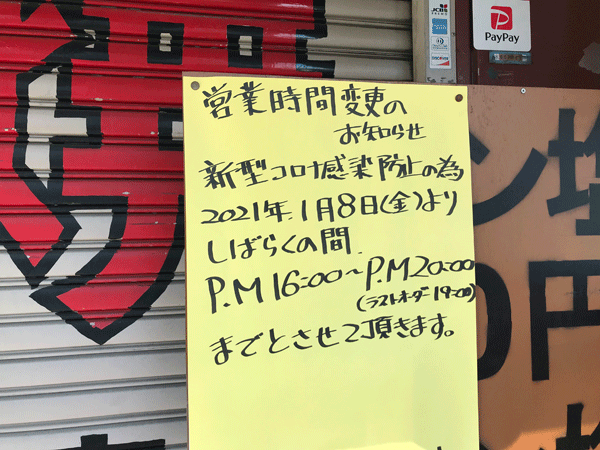 営業時間変更の
お知らせ
新型コロナ感染防止の為
2021年1月8日(金)より
しばらくの間
P.M16:00～P.M20:00
(ラストオーダー19:00)
までとさせて頂きます。
JCB
DISCOVER
PayPay
ン塩
0円